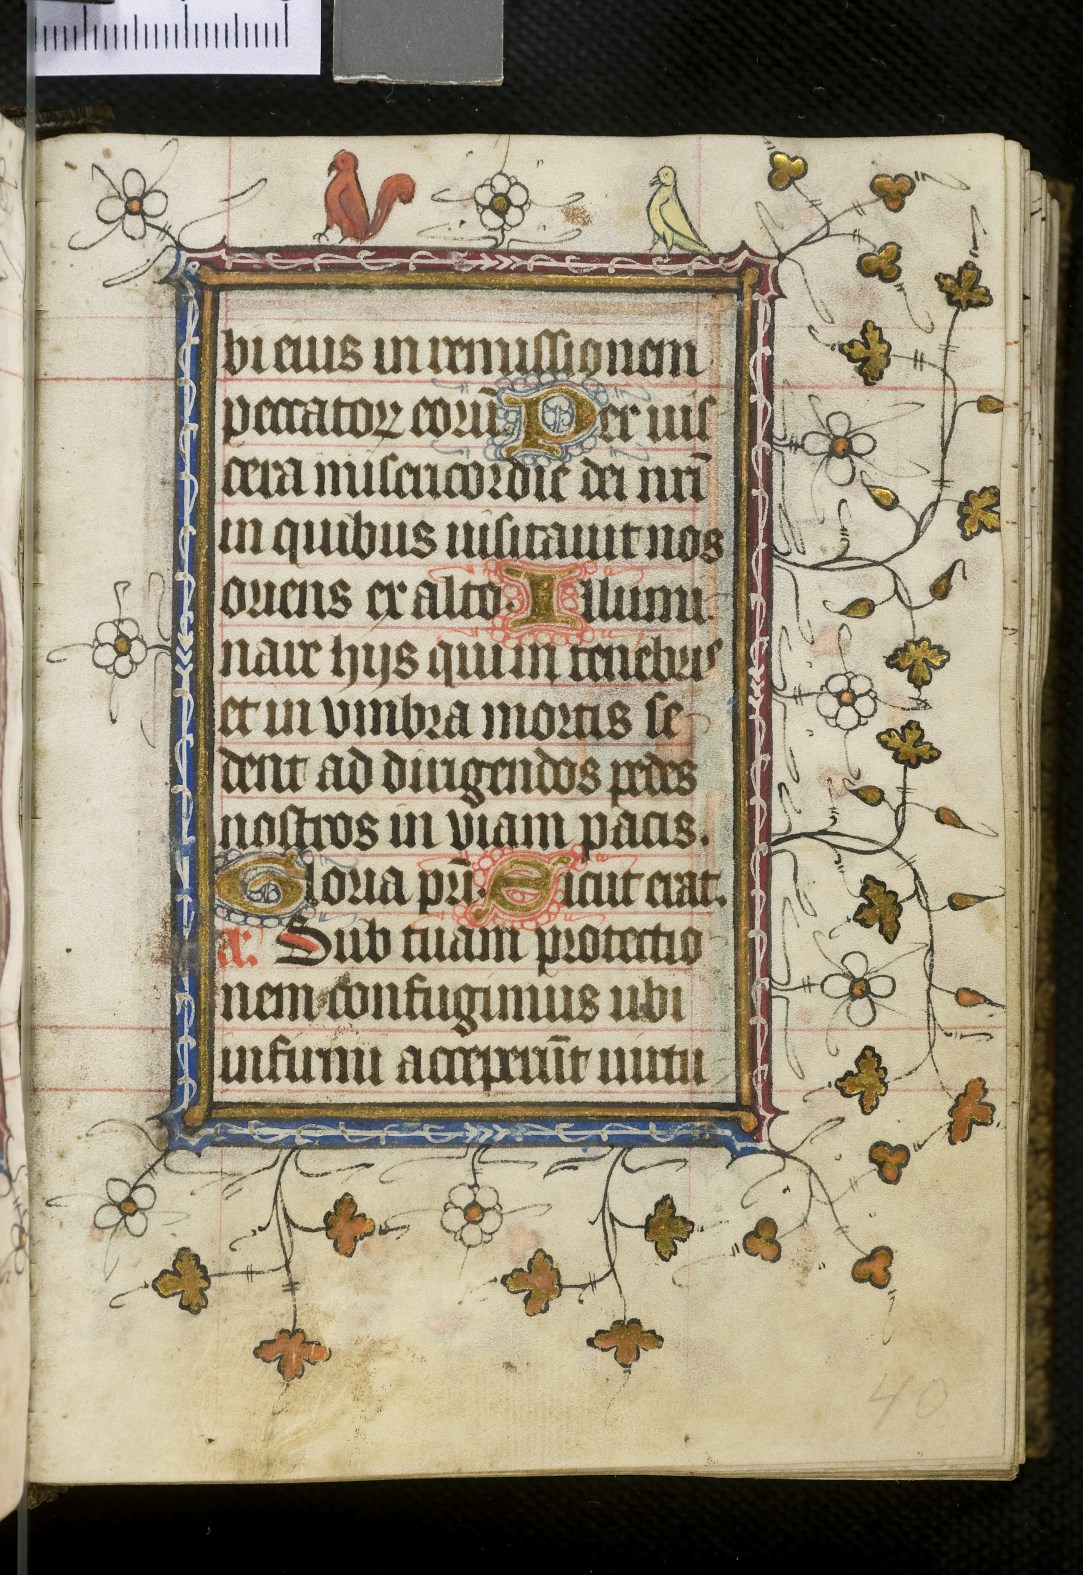 bi eius in remissionem
peccatoꝝ eorū Per uis
cera misericordie dei nrī
in quibus uisitauit nos
oriens ex alto. Illumi
nare hijs qui in tenebris
et in vmbra mortis se
dent ad dirigendos pedes
nostros in viam pacis.
Gloria pr̄i. Sicut erat.
a. Sub tuam protectio
nem confugimus ubi
infirmi acceperūt uirtu
40